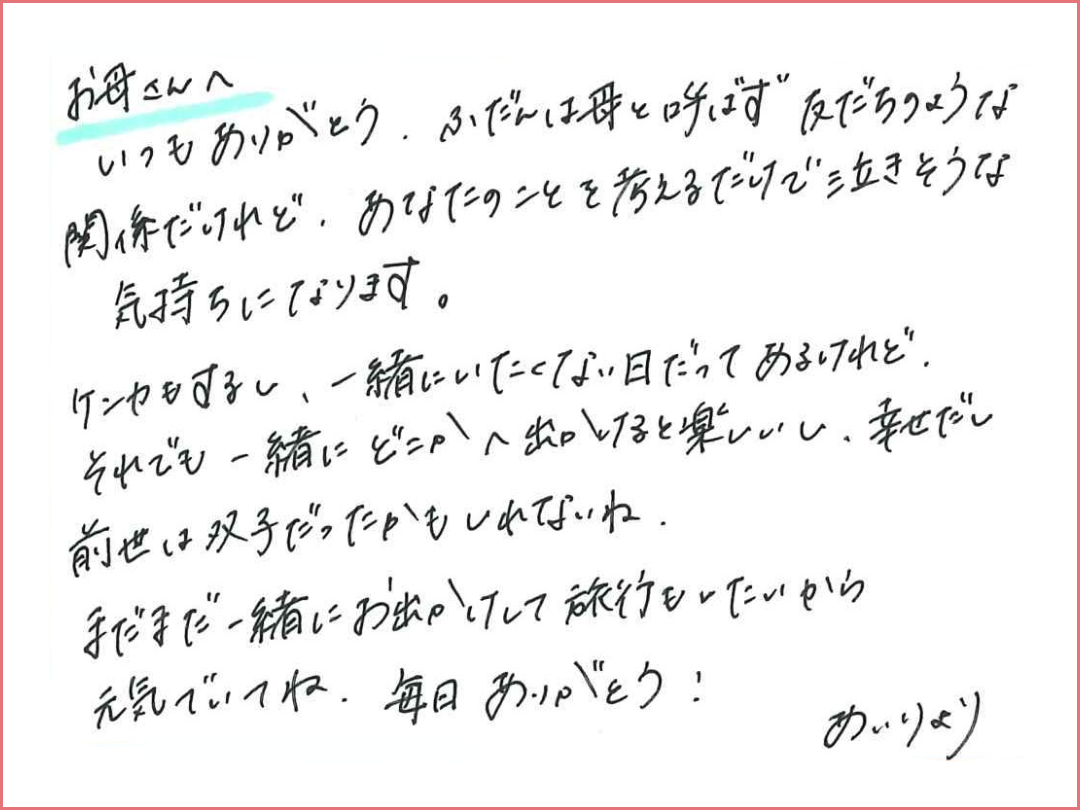 お母さんへ
いつもありがとう. ふだんは母と呼ばず 友だちのような
関係だけれど. あなたのことを考えるだけで泣きそうな
気持ちになります。
ケンカもするし、一緒にいたくない日だってあるけれど.
それでも一緒にどこかへ出かけると楽しいし、幸せだし
前世は双子だったかもしれないね.
まだまだ一緒にお出かけして旅行もしたいから
元気でいてね. 毎日ありがとう!
めいりより